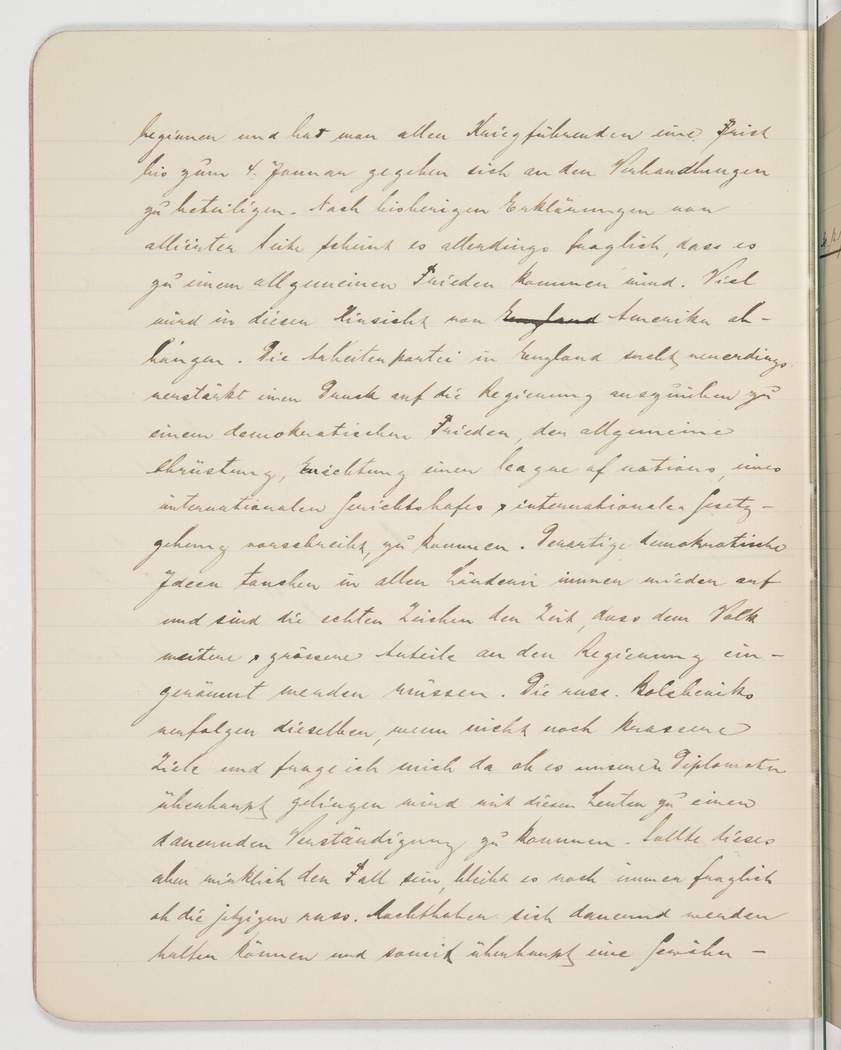 beginnen und hat man allen Kriegführenden eine Frist
bis zum 4. Januar gegeben sich an den Verhandlungen
zu beteiligen. Nach bisherigen Erklärungen von
alliierter Seite scheint es allerdings fraglich, dass es
zu einem allgemeinen Frieden kommen wird. Viel
wird in dieser Hinsicht von England Amerika ab-
hängen. Die Arbeiterpartei in England sucht neuerdings
verstärkt einen Druck auf die Regierung auszuüben zu
einem demokratischen Frieden, der allgemeine
Abrüstung, Errichtung einer league of nations, eines
internationalen Gerichtshofes & internationaler Gesetz-
gebung vorschreibt, zu kommen. Derartige demokratische
Ideen tauchen in allen Ländern immer wieder auf
und sind die echten Zeichen der Zeit, dass dem Volk
weitere & grössere Anteile an der Regierung ein-
geräumt werden müssen. Die russ. Bolsheviks
verfolgen dieselben, wenn nicht noch krassere
Ziele und frage ich mich da ob es unseren Diplomaten
überhaupt gelingen wird mit diesen Leuten zu einer
dauernden Verständigung zu kommen. Sollte dieses
aber wirklich der Fall sein, bleibt es noch immer fraglich
ob die jetzigen russ. Machthaber sich dauernd werden
halten können und somit überhaupt eine Gewähr-